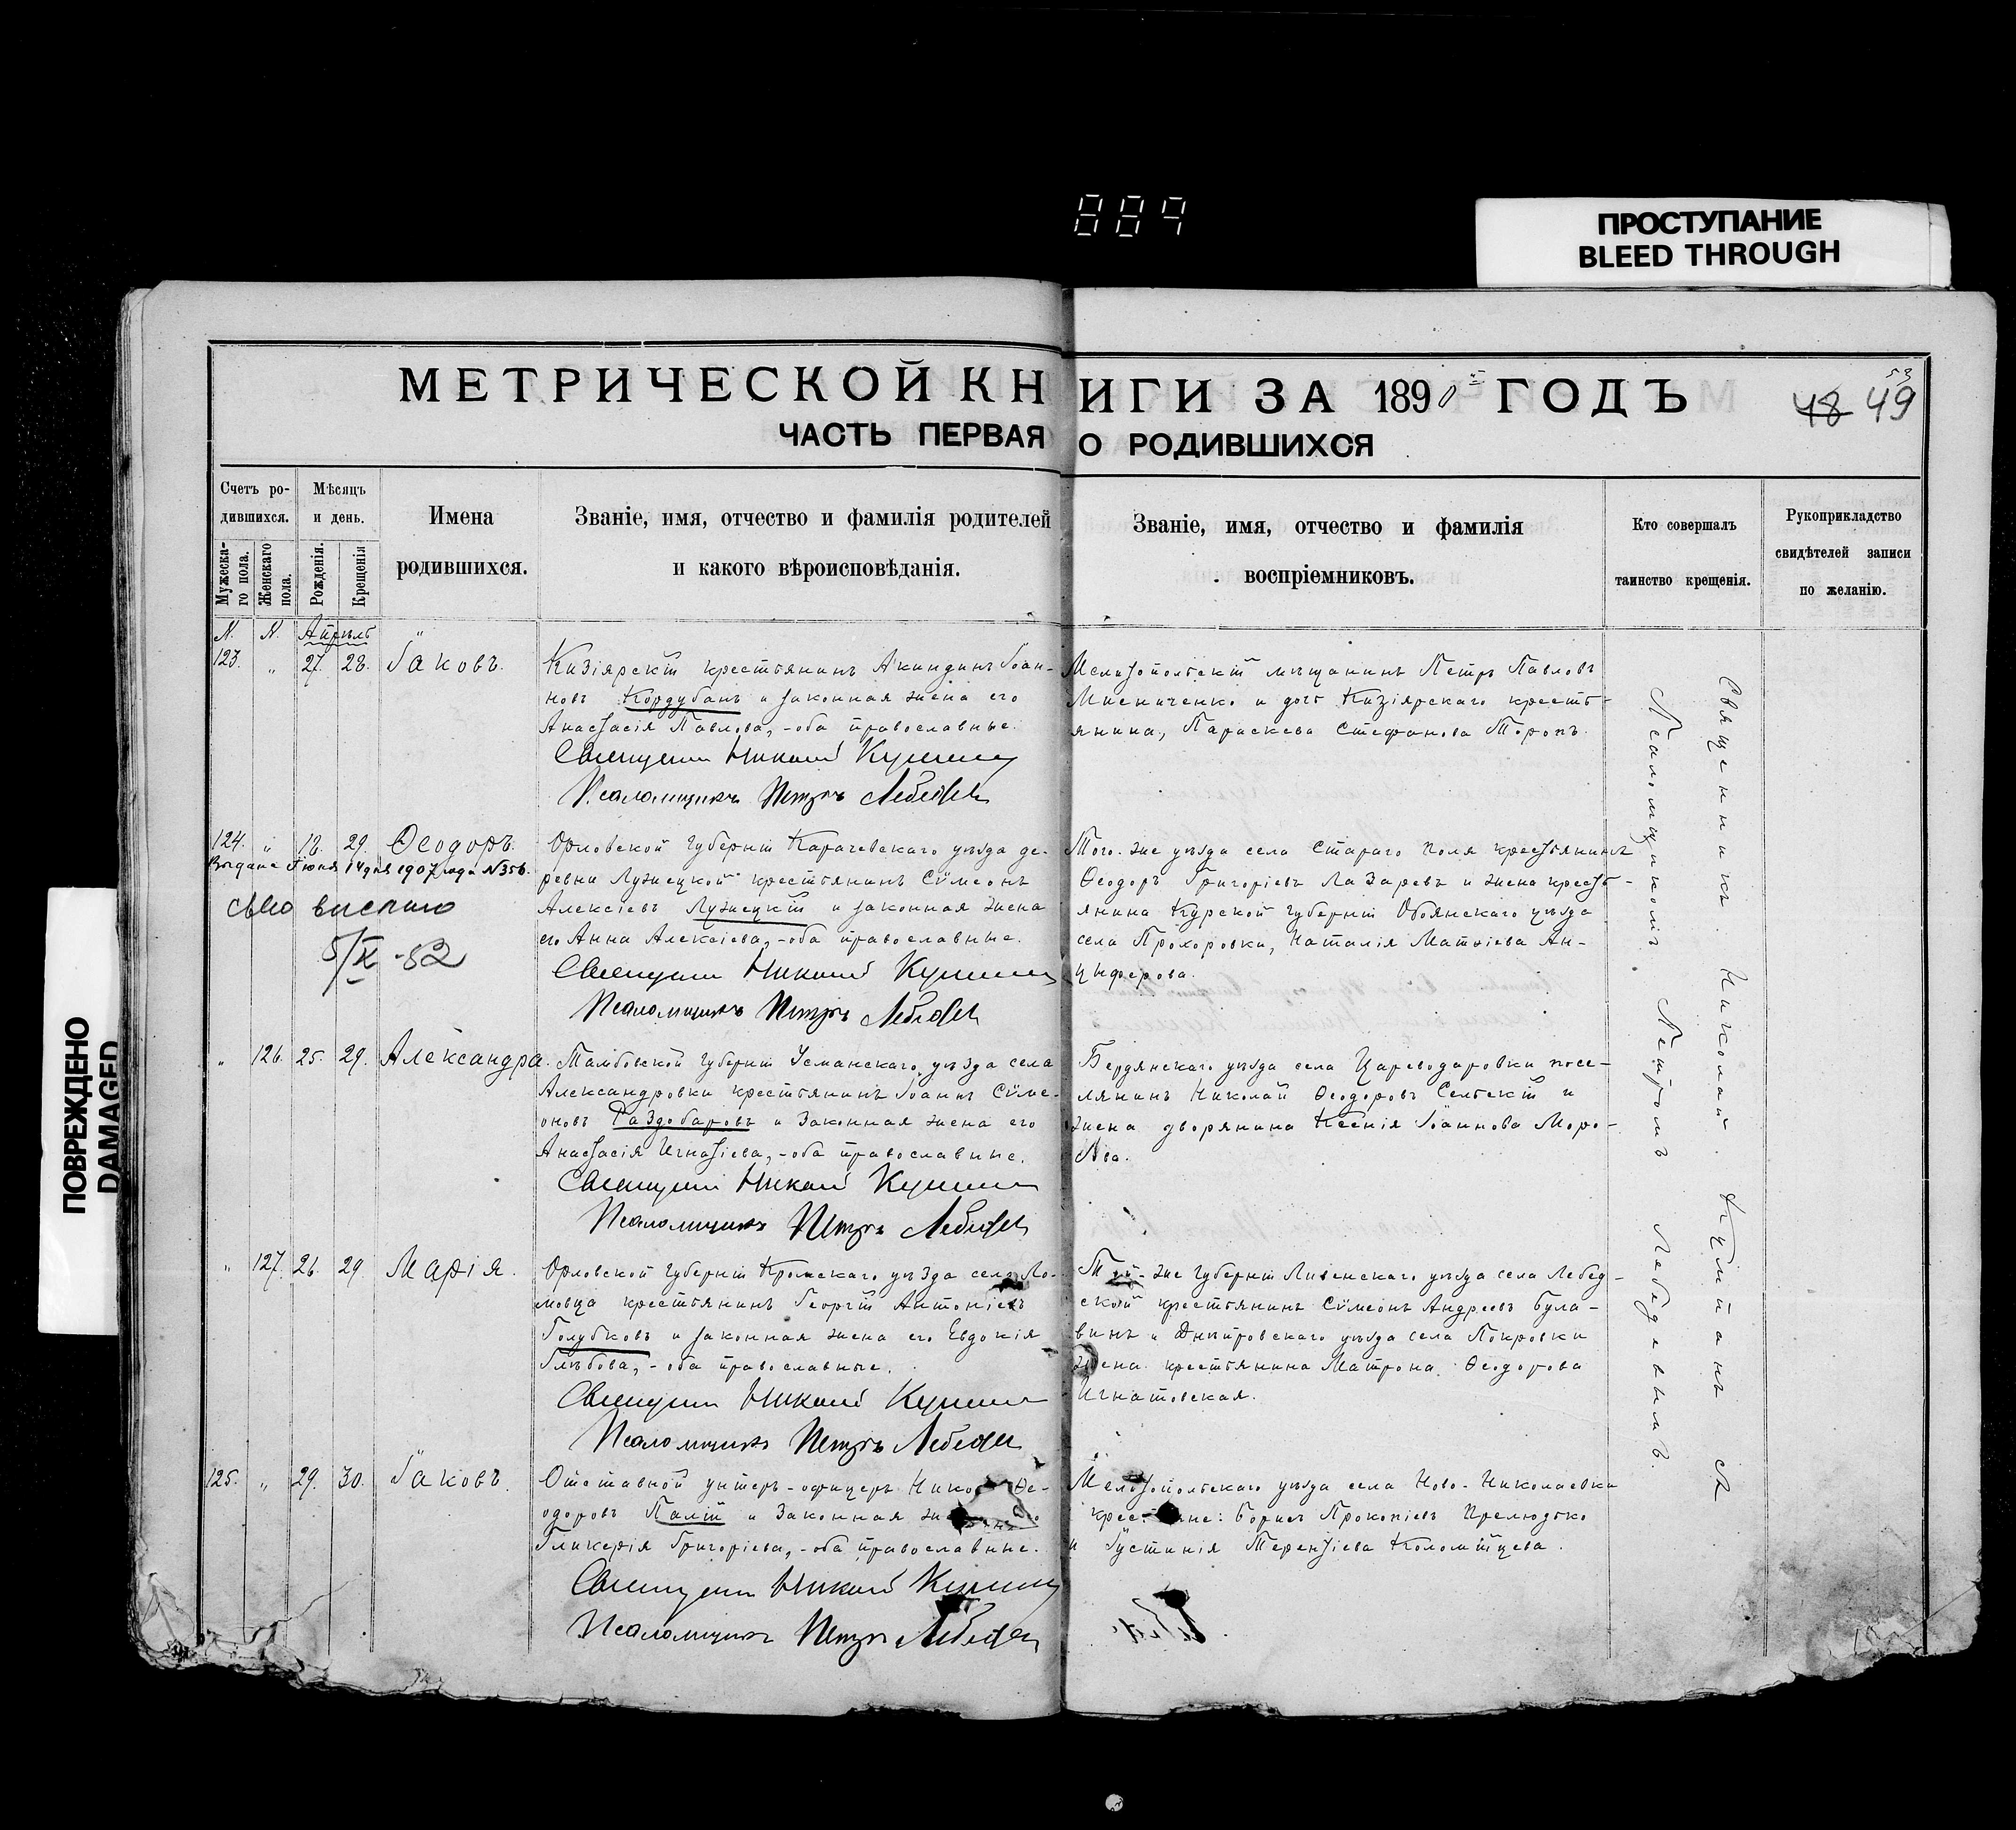 889
ПРОСТУПАНИЕ
BLEED THROUGH
ПОВРЕЖДЕНО
DAMAGED
МЕТРИЧЕСКОЙ КНИГИ ЗА 1890 ГОДЪ
53
48 49
ЧАСТЬ ПЕРВАЯ О РОДИВШИХСЯ
Счетъ ро-
дившихся.
Мужеска-
го пола.
Женскаго
пола.
Мѣсяцъ
и день.
Рожденія.
Крещенія
Имена
родившихся.
Званіе, имя, отчество и фамилія родителей
и какого вѣроисповѣданія.
Званіе, имя, отчество и фамилія
воспріемниковъ.
Кто совершалъ
таинство крещенія.
Рукоприкладство
свидѣтелей записи
по желанію.
N. N. Апрѣль
123. " 27. 28. Іаковъ.
Кизіярскій крестьянинъ Акиндинъ Іоан-
новъ Кордубанъ и законная жена его
Анастасія Павлова, - оба православные.
Священникъ Николай
Псаломщикъ Петръ Лебедевъ
Мелитопольскій мѣщанинъ Петръ Павловъ
и дочь Кизіярскаго кресть-
янина, Параскева Стефанова
124. " 18. 29. Ѳеодоръ.
Выдана Іюня 14 дня 1907 года N 356.
св-во выслано
5/IX-82
Орловской губерніи Карачевскаго уѣзда де-
ревни Лужецкой крестьянинъ Сѵмеонъ
Алексіевъ Лужецкій и законная жена
его Анна Алексіева, - оба православные.
Священникъ Николай
Псаломщикъ Петръ Лебедевъ
Того-же уѣзда села Стараго Поля крестьянинъ
Ѳеодоръ Григоріевъ Лазаревъ и жена кресть-
янина Курской губерніи Обоянскаго уѣзда
села Прохоровки, Наталія Матѳіева Ан-
цыферова.
" 126. 25. 29. Александра.
Тамбовской губерніи Усманскаго уѣзда села
Александровки крестьянинъ Іоаннъ Сѵме-
оновъ Раздобаровъ и законная жена его
Анастасія Игнатіева, - оба православные.
Священникъ Николай
Псаломщикъ Петръ Лебедевъ
Бердянскаго уѣзда села Цареводаровки посе-
лянинъ Николай Ѳеодоровъ Сельскій и
жена дворянина Ксенія Іоаннова Моро-
" 127. 26. 29. Марія.
Орловской губерніи Кромскаго уѣзда села Ло-
мовца крестьянинъ Георгій Антоніевъ
Голубковъ и законная жена его Евдокія
Глѣбова, - оба православные.
Священникъ Николай
Псаломщикъ Петръ Лебедевъ
Той-же губерніи Ливенскаго уѣзда села Лебед-
ской крестьянинъ Сѵмеонъ Андреевъ Була-
винъ и Днѣпровскаго уѣзда села Покровки
жена крестьянина Матрона Ѳеодорова
Игнатовская.
125. " 29. 30. Іаковъ.
Отставной унтеръ-офицеръ Ѳе-
одоровъ Палій и законная
Гликерія Григоріева, - оба православные.
Священникъ Николай
Псаломщикъ Петръ Лебедевъ
Мелитопольскаго уѣзда села Ново-Николаевки
Борисъ Прокопіевъ Прелюдько
и Іустинія Терентіева Коломійцева.
Священникъ Николай
Псаломщикомъ Петромъ Лебедевымъ.